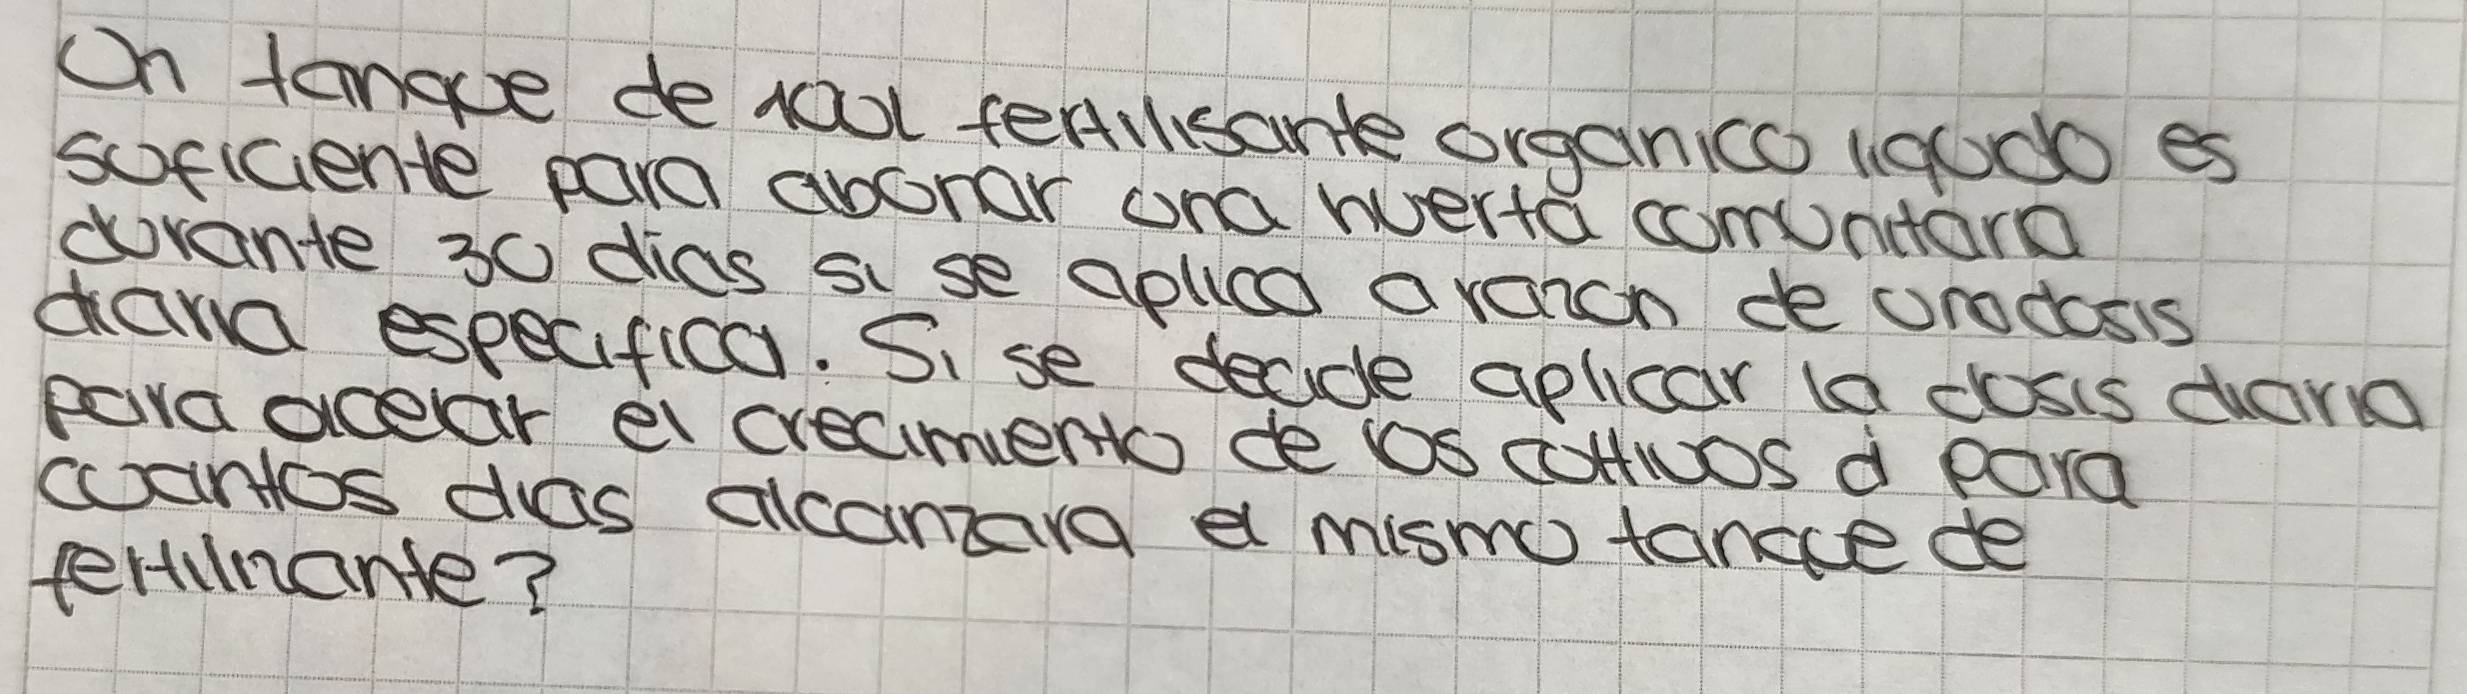 Un tanque de 100L fertilisante organico liqudo es
suficiente para abonar una huerta comunitara
durante 30 dias si se aplica a razon de unadosis
diaria especifica. Si se decide aplicar la dosis diaria
para acelar el crecimiento de los cultivos d para
cuantos dias alcanzara el mismo tanque de
fertilizante?